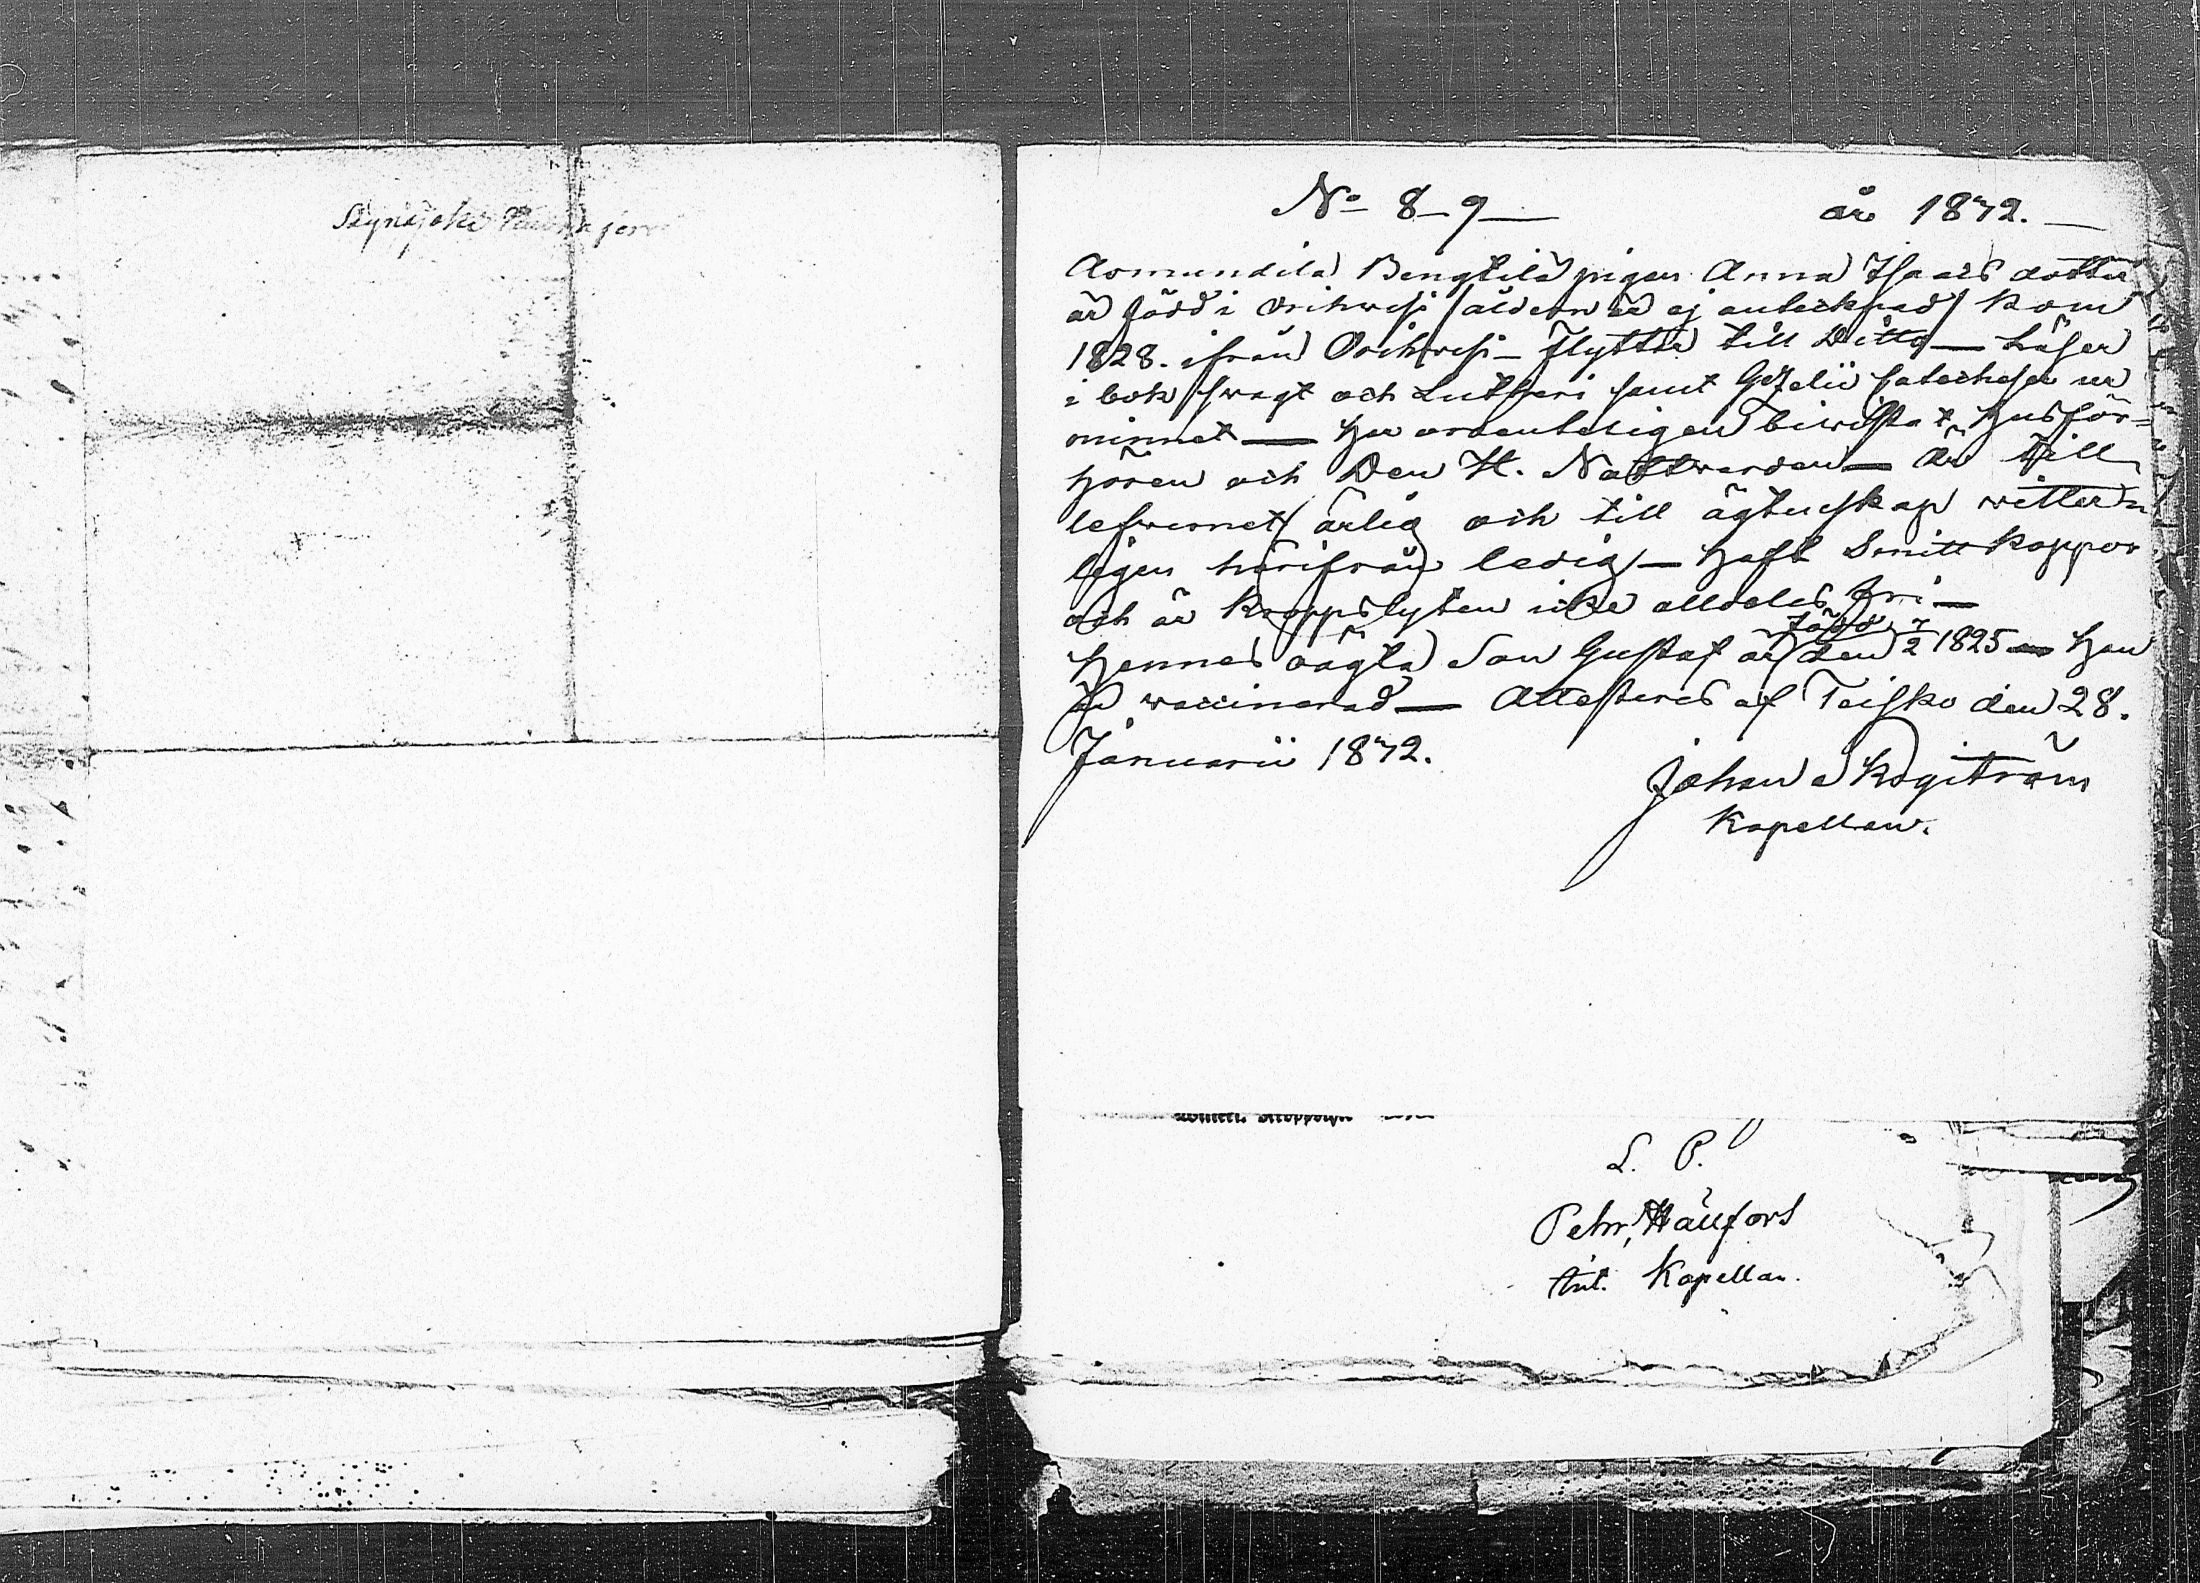 Synsjoki
N:o 8-9 år 1842.
Aomundila Bengtilä pigan Anna Isaks dotter
är född i Orihwesi /åldern är ej antecknad/ kom
1828. ifrån Orihwesi – Flyttar till Ditto – Läser
i bok swagt och Lutheri samt Gezelii Catecheser ur
minnet – har ordenteligen biwistat Husför=
hören och Den H. Nattwarden – är till
lefwernet ärlig och till ägtenskap witter=
ligen härifrån ledig – haft Smittkoppor
och är Kroppslyten icke alldeles fri –
Hennes oägta Son Gustaf är född den 7/2 1825 – han
är waccinerad – Attesteres af Teisko den 28.
Januarii 1842.
Johan Skogström
Kapellan.
L. P.
Pehr Hällfors
Kapellan.